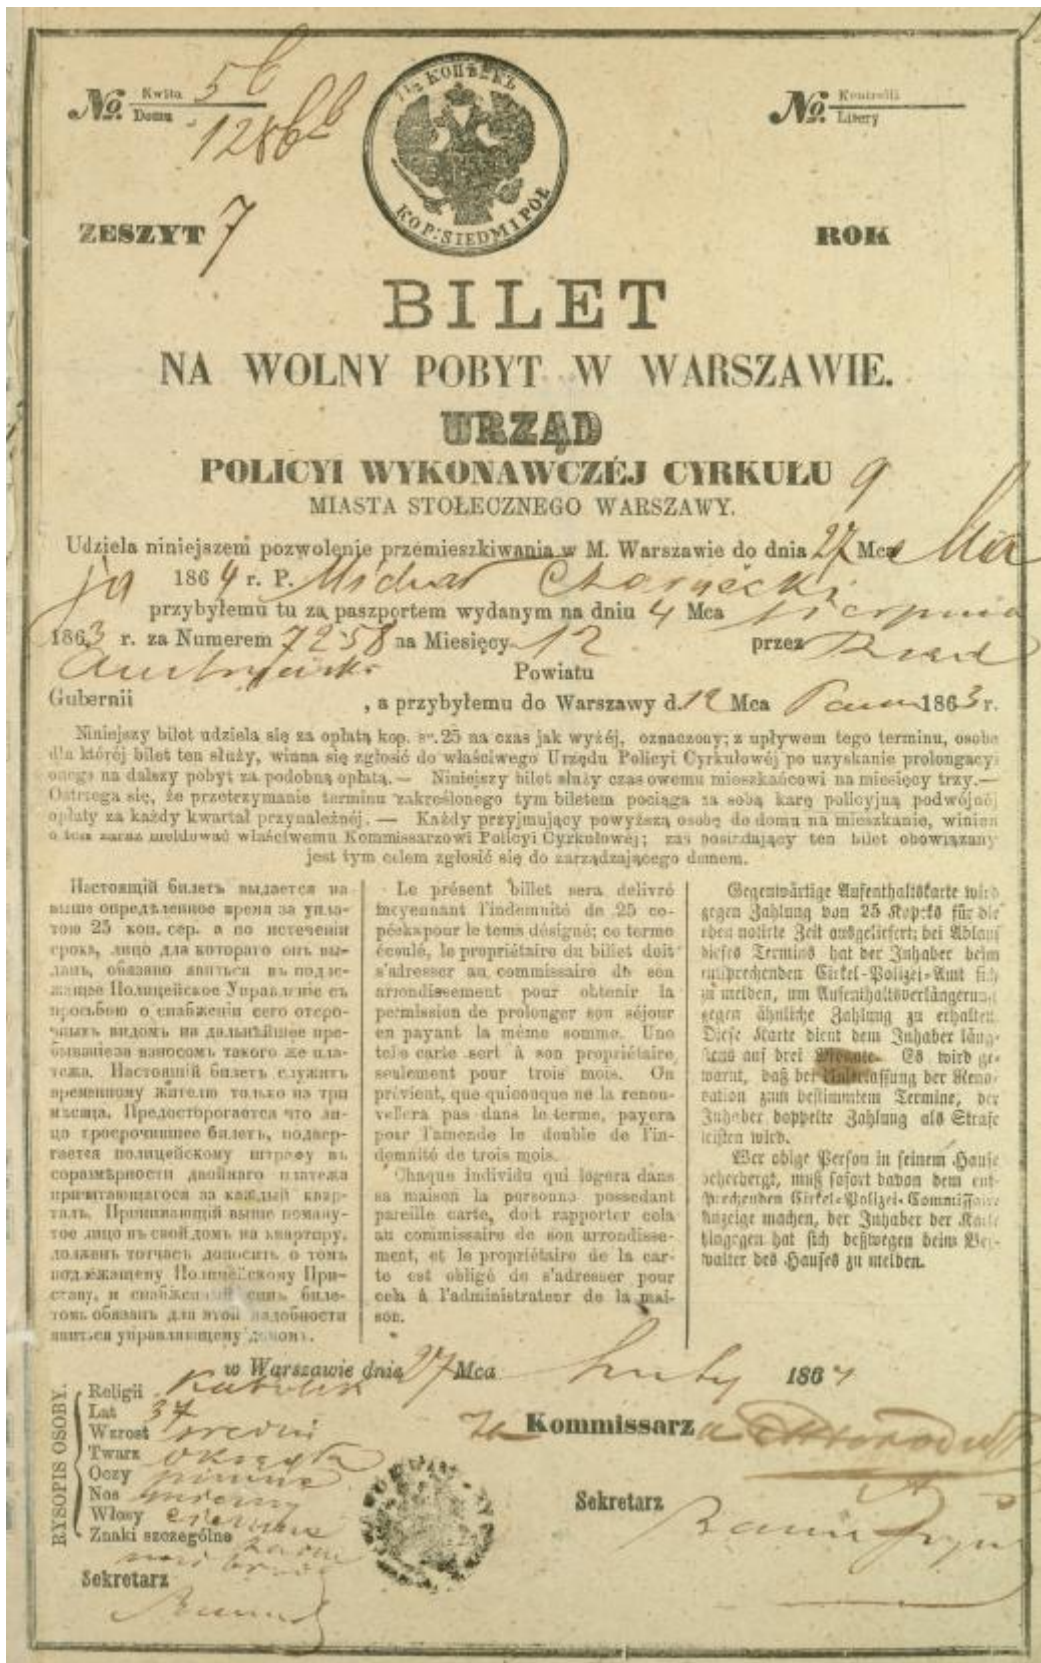 No. Kwitu 56
Domu 1286
No. Kontrolli
Litery
7½ КОПѢЕКЪ
KOP: SIEDM I PÓŁ
ZESZYT 7
ROK
BILET
NA WOLNY POBYT W WARSZAWIE.
URZĄD
POLICYI WYKONAWCZÉJ CYRKUŁU 9
MIASTA STOŁECZNEGO WARSZAWY.
Udziela niniejszem pozwolenie przemieszkiwania w M. Warszawie do dnia 27 Mca Ma
ja 1864 r. P. Michał Czarnecki
przybyłemu tu za paszportem wydanym na dniu 4 Mca sierpnia
1863 r. za Numerem 7258 na Miesięcy 12 przez Rząd
Austryacki Powiatu
Gubernii , a przybyłemu do Warszawy d. 12 Mca 1863 r.
Niniejszy bilet udziela się za opłatą kop. sr. 25 na czas jak wyżéj, oznaczony; z upływem tego terminu, osoba
dla któréj bilet ten służy, winna się zgłosić do właściwego Urzędu Policyi Cyrkułowéj po uzyskanie prolongacyi
onego na dalszy pobyt za podobną opłatą. — Niniejszy bilet służy czasowemu mieszkańcowi na miesięcy trzy. —
Ostrzega się, że przetrzymanie terminu zakreślonego tym biletem pociąga za sobą karę policyjną podwójnéj
opłaty za każdy kwartał przynależnéj. — Każdy przyjmujący powyższą osobę do domu na mieszkanie, winien
o tem zaraz meldować właściwemu Kommissarzowi Policyi Cyrkułowéj; zaś posiadający ten bilet obowiązany
jest tym celem zgłosić się do zarządzającego domem.
Настоящій билетъ выдается на
выше опредѣленное время за упла-
тою 25 коп. сер. а по истеченіи
срока, лицо для котораго онъ вы-
данъ, обязано явиться въ подле-
жащее Полицейское Управленіе съ
просьбою о снабженіи сего отсро-
чнымъ видомъ на дальнѣйшее пре-
бываніе за взносомъ такого же пла-
тежа. Настоящій билетъ служитъ
временному жителю только на три
мѣсяца. Предосторогается что ли-
цо просрочившее билетъ, подвер-
гается полицейскому штрафу въ
соразмѣрности двойнаго платежа
причитающагося за каждый квар-
талъ. Принимающій выше помяну-
тое лицо въ свой домъ на квартиру,
долженъ тотчасъ доносить о томъ
подлежащему Полицейскому При-
ставу, и снабженный симъ биле-
томъ обязанъ для этой надобности
явиться управляющему домомъ.
Le présent billet sera delivré
moyennant l'indemnité de 25 co-
péeks pour le tems désigné; ce terme
écoulé, le propriétaire du billet doit
s'adresser au commissaire de son
arrondissement pour obtenir la
permission de prolonger son séjour
en payant la même somme. Une
telle carte sert à son propriétaire,
seulement pour trois mois. On
prévient, que quiconque ne la renou-
vellera pas dans le terme, payera
pour l'amende le double de l'in-
demnité de trois mois.
Chaque individu qui logera dans
sa maison la personne possedant
pareille carte, doit rapporter cela
au commissaire de son arrondisse-
ment, et le propriétaire de la car-
te est obligé de s'adresser pour
cela à l'administrateur de la mai-
son.
Gegenwärtige Aufenthaltskarte wird
gegen Zahlung von 25 Kopeks für die
oben notirte Zeit ausgeliefert; bei Ablauf
dieses Termins hat der Inhaber beim
entsprechenden Cirkel-Polizei-Amt sich
zu melden, um Aufenthaltsverlängerung
gegen ähnliche Zahlung zu erhalten.
Diese Karte dient dem Inhaber läng-
stens auf drei Monate. Es wird ge-
warnt, daß bei Unterlassung der Reno-
vation zum bestimmtem Termine, der
Inhaber doppelte Zahlung als Strafe
leisten wird.
Wer obige Person in seinem Hause
beherbergt, muß sofort davon dem ent-
sprechenden Cirkel-Polizei-Commissair
Anzeige machen, der Inhaber der Karte
hingegen hat sich deßwegen beim Ver-
walter des Hauses zu melden.
w Warszawie dnia 27 Mca Luty 1864
RYSOPIS OSOBY.
Religii Katolick
Lat 37
Wzrost średni
Twarz okrągła
Oczy piwne
Nos mierny
Włosy ciemne
Znaki szczególne
Sekretarz
Za Kommissarz
Sekretarz